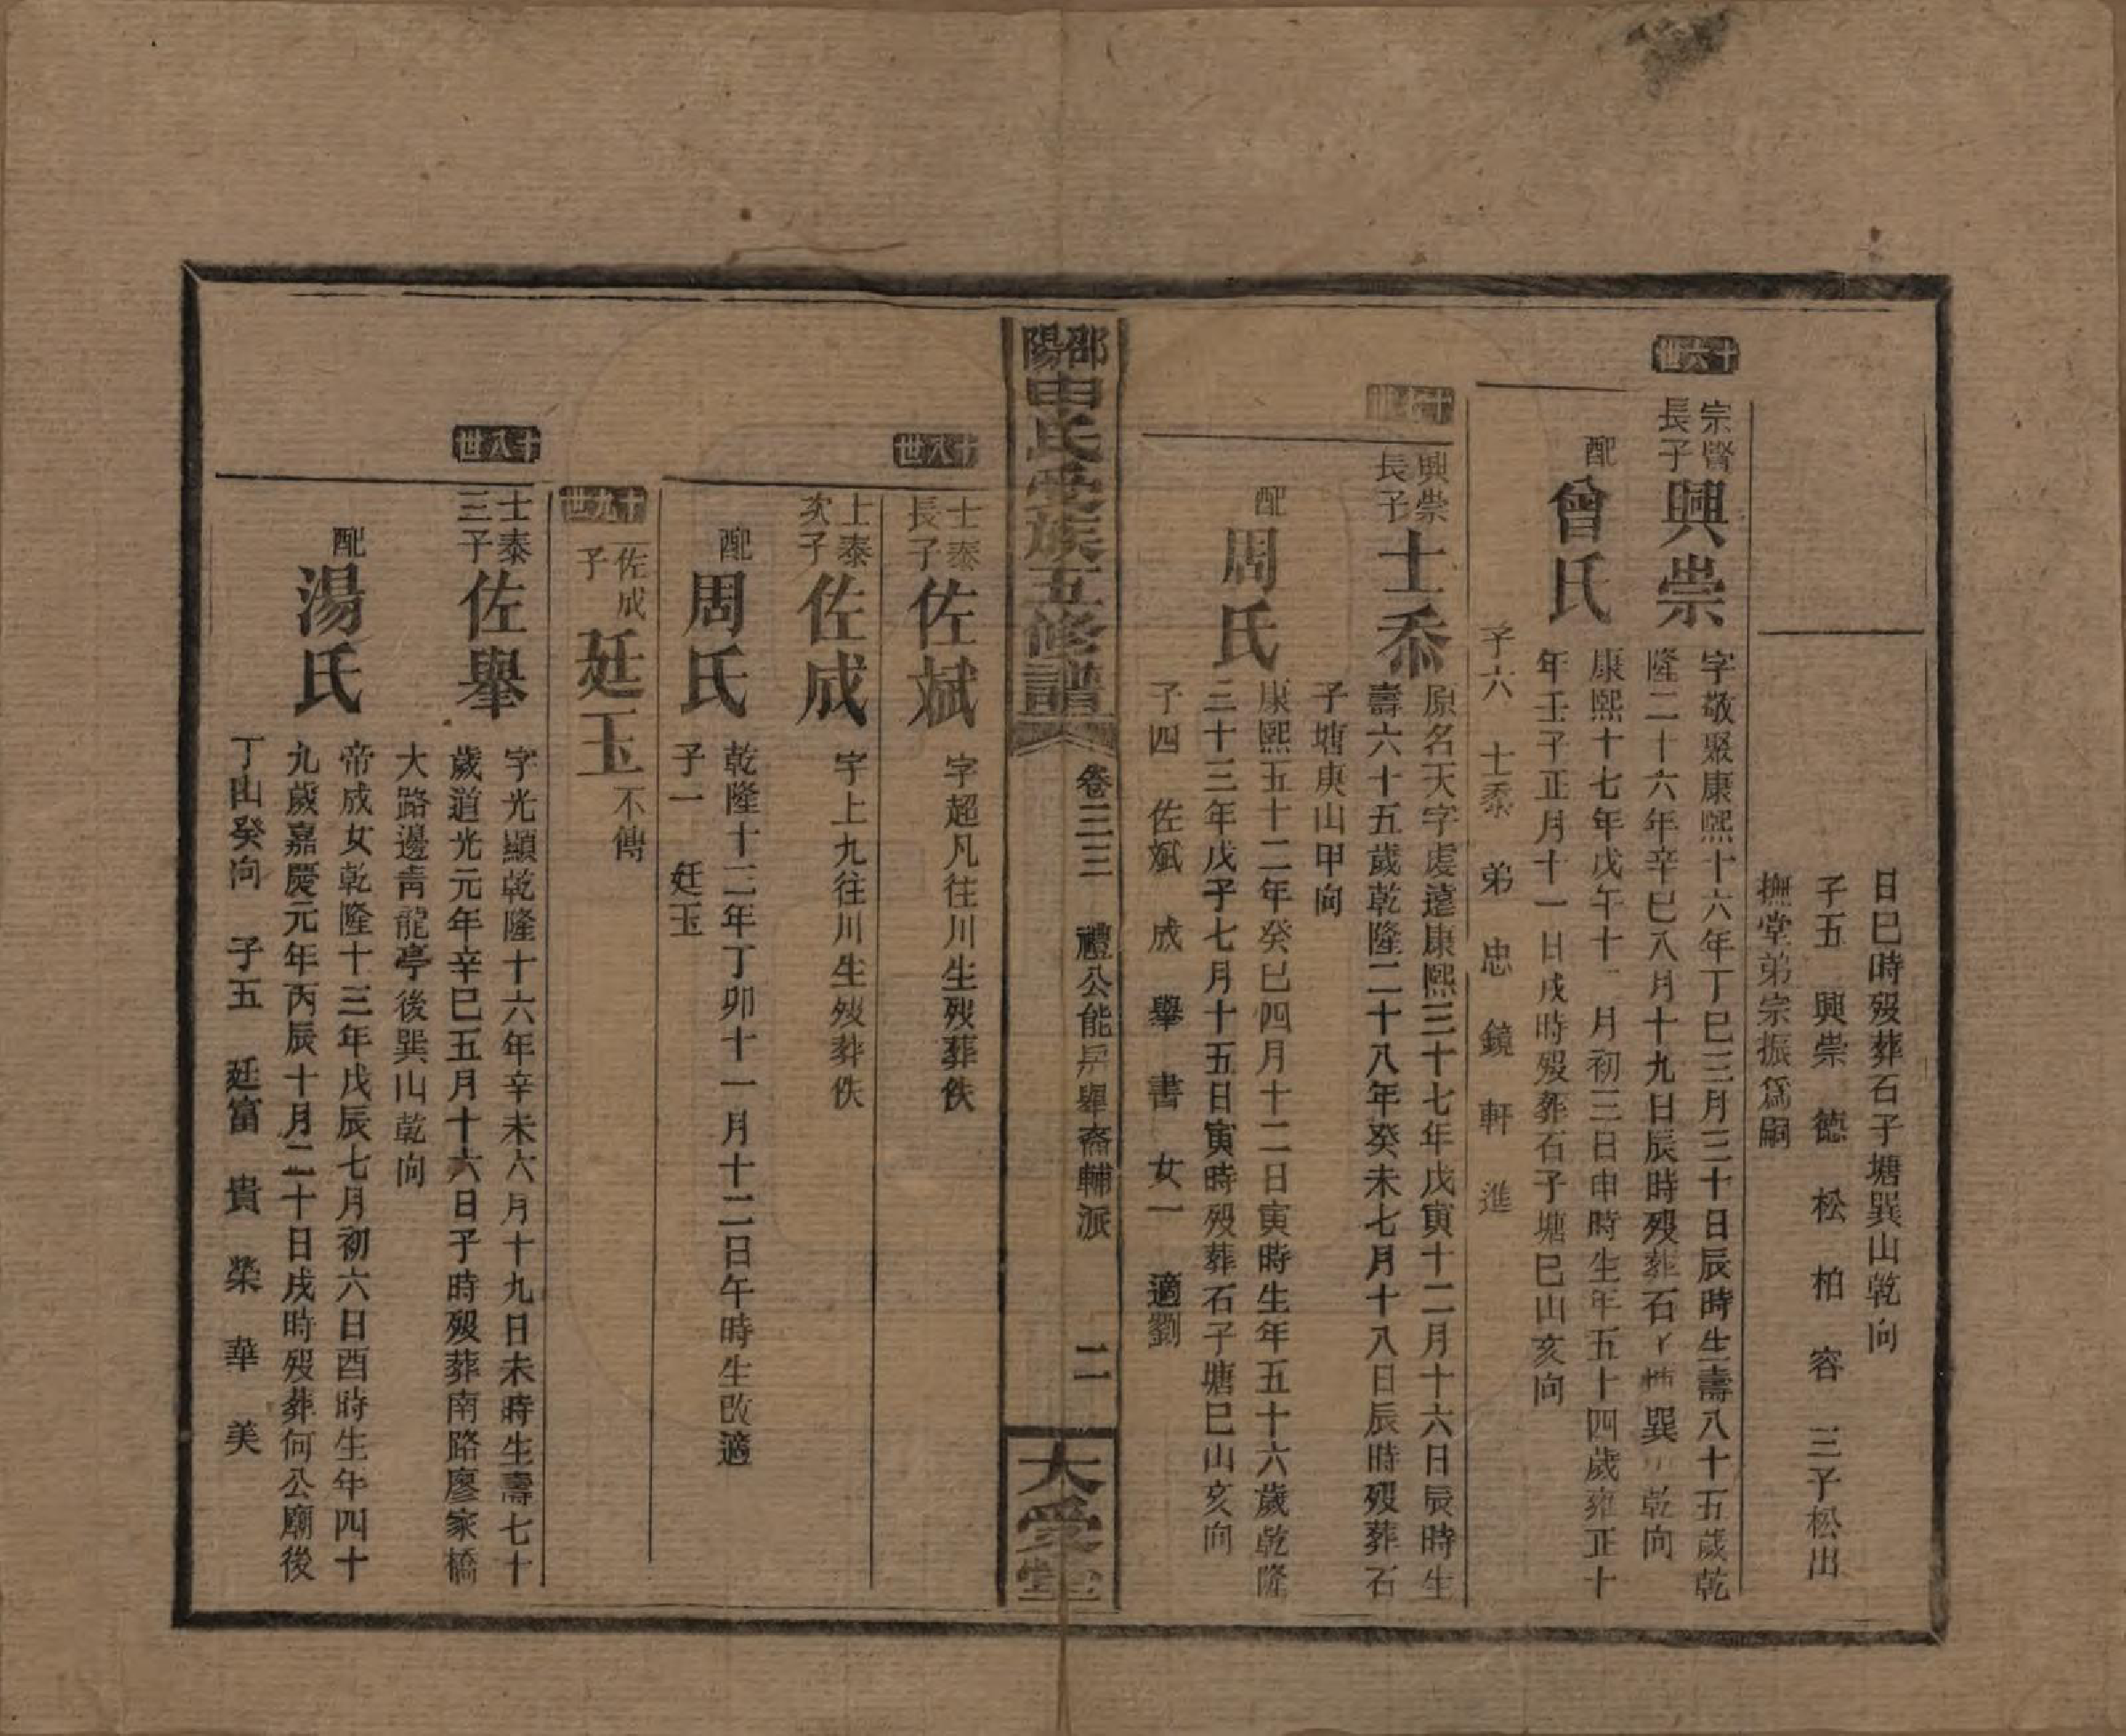 日巳時歿葬石子塘巽山乾向
子五　興崇　德　松　柏　容　三子松出
撫堂弟宗振爲嗣
十六世
宗賢長子　興崇　字敬聚康熙十六年丁巳三月三十日辰時生壽八十五歲乾
隆二十六年辛巳八月十九日辰時歿葬石子塘巽山乾向
配　曾氏　康熙十七年戊午十一月初三日申時生年五十四歲雍正十
年壬子正月十一日戌時歿葬石子塘巳山亥向
子六　士泰　弟　忠　鏡　軒　進
十七世
興崇長子　士泰　原名天字虔遠康熙三十七年戊寅十二月十六日辰時生
壽六十五歲乾隆二十八年癸未七月十八日辰時歿葬石
子塘庚山甲向
配　周氏　康熙五十二年癸巳四月十二日寅時生年五十六歲乾隆
三十三年戊子七月十五日寅時歿葬石子塘巳山亥向
子四　佐斌　成　舉　書　女一　適劉
邵陽申氏受族五修譜
卷三三　禮公能房畢裔輔派　二
大受堂
十八世
士泰長子　佐斌　字超凡往川生歿葬佚
士泰次子　佐成　字上九往川生歿葬佚
配　周氏　乾隆十二年丁卯十一月十二日午時生改適
子一　廷玉
十九世
佐成子　廷玉　不傳
十八世
士泰三子　佐舉　字光顯乾隆十六年辛未六月十九日未時生壽七十
歲道光元年辛巳五月十六日子時歿葬南路廖家橋
大路邊青龍亭後巽山乾向
配　湯氏　帝成女乾隆十三年戊辰七月初六日酉時生年四十
九歲嘉慶元年丙辰十月二十日戌時歿葬何公廟後
丁山癸向　子五　廷富　貴　榮　華　美